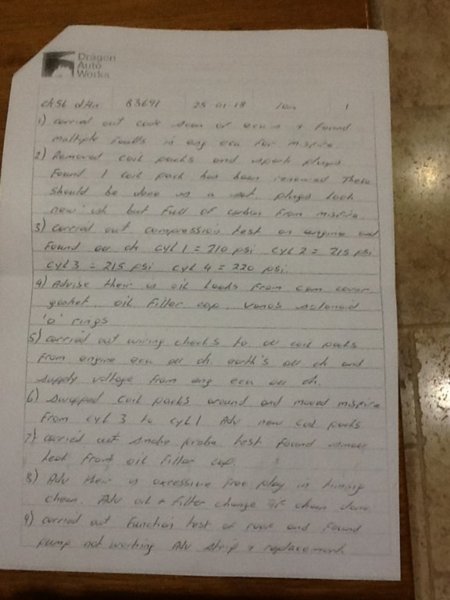 Dragon
Auto
Works
83691 25-01-18 1
1) Carried out code scan of ecu's & found
multiple faults in eng ecu for misfire
2) Removed coil packs and spark plugs
found 1 coil pack has been renewed. These
should be done as a set. plugs look
new'ish but full of carbon from misfire.
3) Carried out compression test on engine and
found all ok cyl 1 = 210 psi cyl 2 = 215 psi
cyl 3 = 215 psi cyl 4 = 220 psi.
4) Advise their is oil leaks from cam cover
gasket, oil filler cap, vanos solenoid
'o' rings
5) Carried out wiring checks to all coil packs
from engine ecu all ok earth's all ok and
supply voltage from eng ecu all ok
6) Swapped coil packs around and moved misfire
from cyl 3 to cyl 1. Adv new coil packs
7) Carried out smoke probe test found smoke
leak from oil filler cap.
8) Adv their is excessive free play in timing
chain. Adv oil & filter change if chain done
9) Carried out function test of and found
pump not working Adv strip & replacement